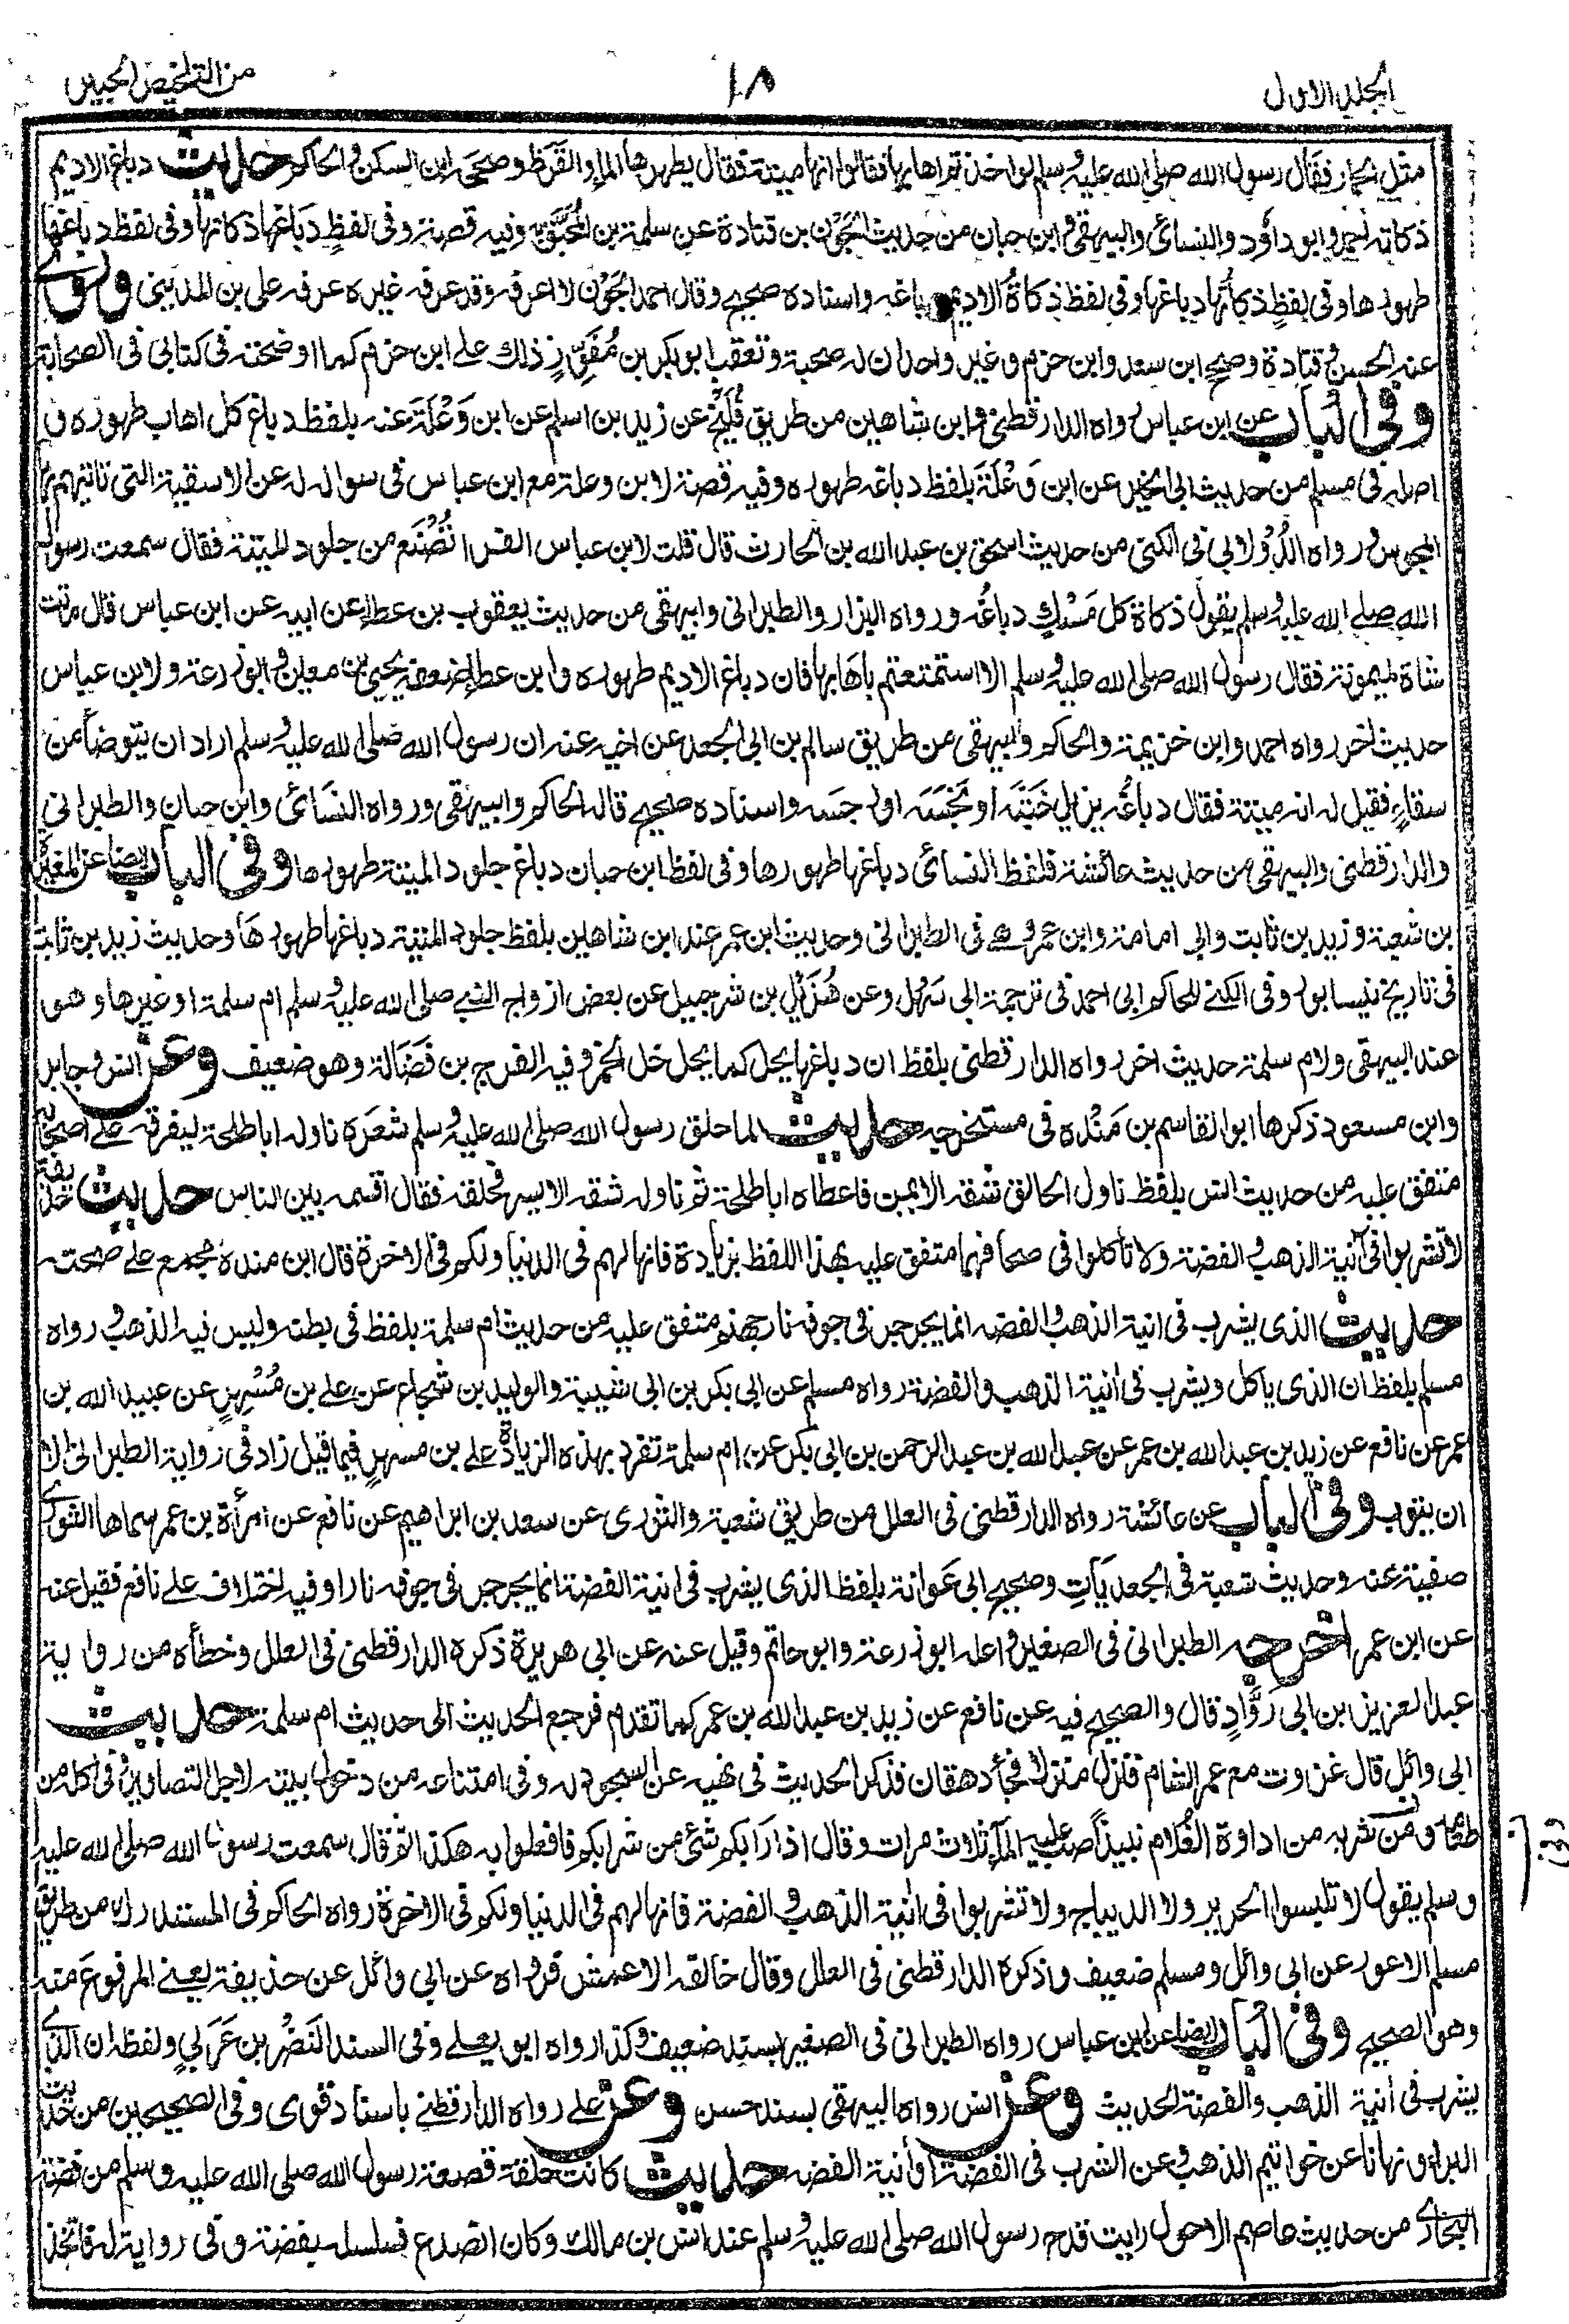 الجلد الاول
١٨
من التلخيص الحبير
مثل الحمار فقال رسول الله صلى الله عليه وسلم لو اخذتم اهابها فقالوا انها ميتة فقال يطهرها الماء والقرظ وصححه ابن السكن والحاكم حديث دباغ الاديم
ذكاته احمد وابو داؤد والنسائى والبيهقى وابن حبان من حديث الجَوْن بن قتادة عن سلمة بن المُحَبَّق به وفيه قصة وفى لفظٍ دَباغها ذكاتها وفى لفظ دباغها
طهورها وفى لفظٍ ذكاتها دباغها وفى لفظ ذكاةُ الاديم دباغه واسناده صحيح وقال احمد الجَوْن لا اعرفه وقد عرفه غيره عرفه على بن المدينى وروى
عنه الحسن وقتادة وصحح ابن سعد وابن حزم وغير واحد ان له صحبة وتعقب ابو بكر بن مُفَوِّزٍ ذلك على ابن حزم كما اوضحته فى كتابى فى الصحابة
وفى الباب عن ابن عباس رواه الدارقطنى وابن شاهين من طريق فُلَيْحٍ عن زيد بن اسلم عن ابن وَعْلَة عنه بلفظ دباغ كل اهاب طهوره و
اصله فى مسلم من حديث ابى الخير عن ابن وَعْلَة بلفظ دباغه طهوره وفيه قصة لابن وعلة مع ابن عباس فى سواله له عن الاسقية التى تاتيهم بها
المجوس ورواه الدُّوْلابى فى الكنى من حديث اسحق بن عبد الله بن الحارث قال قلت لابن عباس الفرا تُصْنَع من جلود الميتة فقال سمعت رسول
الله صلى الله عليه وسلم يقول ذكاة كل مَسْكٍ دباغُه ورواه البزار والطبرانى والبيهقى من حديث يعقوب بن عطاء عن ابيه عن ابن عباس قال ماتت
شاة لميمونة فقال رسول الله صلى الله عليه وسلم الا استمتعتم باهَابها فان دباغ الاديم طهوره وابن عطاء ضعفه يحيى بن معين وابو زرعة ولابن عباس
حديث اخر رواه احمد وابن خزيمة والحاكم والبيهقى من طريق سالم بن ابى الجعد عن اخيه عنه ان رسول الله صلى الله عليه وسلم اراد ان يتوضأ من
سقاءٍ فقيل له انه ميتة فقال دباغُه يزيل خَبَثَه او نَجَسَه او رجسه واسناده صحيح قاله الحاكم والبيهقى ورواه النسَائى وابن حبان والطبرانى
والدارقطنى والبيهقى من حديث عائشة فلفظ النسائى دباغها طهورها وفى لفظ ابن حبان دباغ جلود الميتة طهورها وفى الباب ايضا عن المغيرة
بن شعبة وزيد بن ثابت وابى امامة وابن عمر وهى فى الطبرانى وحديث ابن عمر عند ابن شاهين بلفظ جلود الميتة دباغها طهورهَا وحديث زيد بن ثابت
فى تاريخ نيسابور وفى الكنى للحاكم ابى احمد فى ترجمة ابى سَهْل وعن هُزَيْل بن شرحبيل عن بعض ازواج النبى صلى الله عليه وسلم ام سلمة او غيرها وهو
عند البيهقى ولام سلمة حديث اخر رواه الدارقطنى بلفظ ان دباغها يحل كما يحل خل الخمر وفيه الفرج بن فَضَالة وهو ضعيف وعن انس وجابر
وابن مسعود ذكرها ابو القاسم بن مَنْدَه فى مستخرجه حديث لما حلق رسول الله صلى الله عليه وسلم شعَره ناوله ابا طلحة ليفرقه على اصحابه
متفق عليه من حديث انس بلفظ ناول الحالق شقه الايمن فاعطاه ابا طلحة ثم ناوله شقه الايسر فحلقه فقال اقسمه بين الناس حديث حذيفة
لا تشربوا فى آنية الذهب والفضة ولا تأكلوا فى صحافهما متفق عليه بهذا اللفظ بزيادة فانها لهم فى الدنيا ولكم فى الاخرة قال ابن مندة مجمع على صحته
حديث الذى يشرب فى انية الذهب والفضه انما يجرجر فى جوفه نار جهنم متفق عليه من حديث ام سلمة بلفظ فى بطنه وليس فيه الذهب ورواه
مسلم بلفظ ان الذى ياكل ويشرب فى اٰنية الذهب والفضة رواه مسلم عن ابى بكر بن ابى شيبة والوليد بن شجاع عن على بن مُسْهِرٍ عن عبيد الله بن
عمر عن نافع عن زيد بن عبد الله بن عمر عن عبد الله بن عبد الرحمن بن ابى بكر عن ام سلمة تفرد بهذه الزيادة على بن مسهرٍ فيما قيل زاد فى رواية الطبرانى الا
ان يتوب وفى الباب عن عائشة رواه الدارقطنى فى العلل من طريق شعبة والثورى عن سعد بن ابراهيم عن نافع عن امرأة بن عمر سماها الثورى
صفية عنه وحديث شعبة فى الجعديَات وصحيح ابى عَوانة بلفظ الذى يشرب فى انية الفضة انما يجرجر فى جوفه نارا وفيه اختلاف على نافع فقيل عنه
عن ابن عمر اخرجه الطبرانى فى الصغير واعله ابو زرعة وابو حاتم وقيل عنه عن ابى هريرة ذكره الدارقطنى فى العلل وخطأه من رواية
عبد العزيز بن ابى رَوَّادٍ قال والصحيح فيه عن نافع عن زيد بن عبد الله بن عمر كما تقدم فرجع الحديث الى حديث ام سلمة حديث
ابى وائل قال غزوت مع عمر الشام فنزل منزلا فجأ دهقان فذكر الحديث فى نهيه عن السجود له وفى امتناعه من دخول بيته لاجل التصاوير وفى اكله من
طعامه ومن شربه من اداوة الغُلام نبيذًا صب عليه الماء ثلاث مرات وقال اذا رَابكم شئ من شرابكم فافعلوا به هكذا ثم قال سمعت رسول الله صلى الله عليه
وسلم يقول لا تلبسوا الحرير ولا الديباج ولا تشربوا فى اٰنية الذهب والفضة فانها لهم فى الدنيا ولكم فى الاخرة رواه الحاكم فى المستدرك من طريق
مسلم الاعور عن ابى وائل ومسلم ضعيف وذكره الدارقطنى فى العلل وقال خالفه الاعمش فرواه عن ابى وائل عن حذيفة يعنى المرفوعَ منه
وهو الصحيح وفى الباب ايضا عن ابن عباس رواه الطبرانى فى الصغير بسند ضعيف وكذا رواه ابو يعلى وفى السند النَضْر بن عَرَبى ولفظه ان الذى
يشرب فى اٰنية الذهب والفضة الحديث وعن انس رواه البيهقى بسند حسن وعن على رواه الدارقطنى باسناد قوى وفى الصحيحين من حديث
البراء ونهانا عن خواتيم الذهب وعن الشرب فى الفضة او أنية الفضه حديث كانت حلقة قصعة رسول الله صلى الله عليه وسلم من فضة
البخارى من حديث عاصم الاحول رايت قدح رسول الله صلى الله عليه وسلم عند انس بن مالك وكان انصدع فسلسله بفضة وفى رواية له فاتخذ